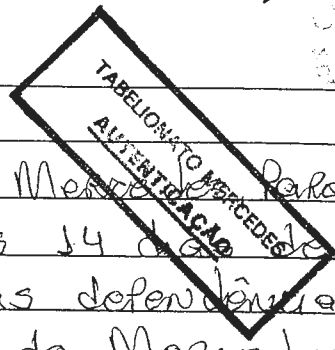 TABELIONATO MERCEDES
AUTENTICAÇÃO
Mercedes Para
s 14 de
s dependência
de Merced